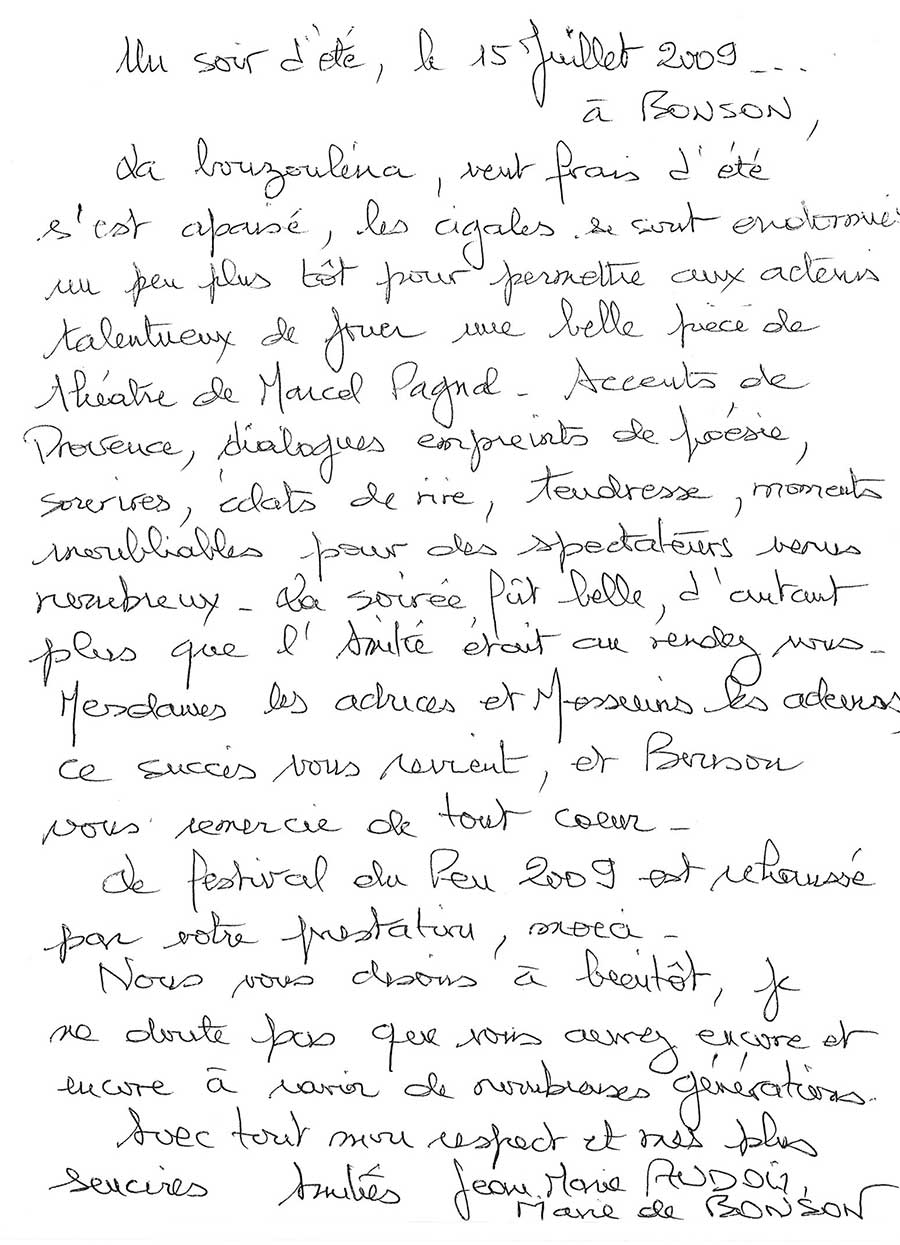 Un soir d'été, le 15 Juillet 2009 ...
à BONSON,
La bouzouléna, vent frais d'été
s'est apaisé, les cigales se sont endormies
un peu plus tôt pour permettre aux acteurs
talentueux de jouer une belle pièce de
théâtre de Marcel Pagnol - Accents de
Provence, dialogues empreints de poésie,
sourires, éclats de rire, tendresse, moments
inoubliables pour des spectateurs venus
nombreux - La soirée fût belle, d'autant
plus que l'Amitié était au rendez vous -
Mesdames les actrices et Messieurs les acteurs,
ce succès vous revient, et Bonson
vous remercie de tout coeur -
Le festival du Peu 2009 est rehaussé
par votre prestation, merci -
Nous vous disons à bientôt, je
ne doute pas que vous aurez encore et
encore à ravir de nombreuses générations.
Avec tout mon respect et mes plus
sincères Amitiés Jean Marie AUDOLI,
Maire de BONSON